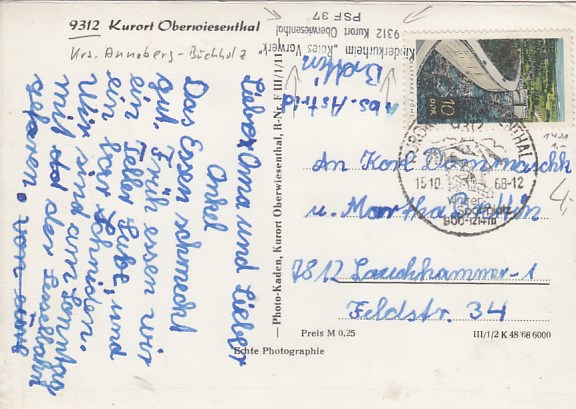 9312 Kurort Oberwiesenthal
Krs. Annaberg-Buchholz
Kinderkurheim "Rotes Vorwerk"
9312 Kurort Oberwiesenthal
PSF 37
Liebe Oma und Lieber
Onkel
Das Essen schmeckt
gut. Früh essen wir
ein Teller Suppe und
ein paar Schnitten.
Wir sind am Sonntag
mit der Seilbahn
gefaren. von eure
Astrid
Photo-Kaden, Kurort Oberwiesenthal, R-Nr. F III/1/11
10
DDR
9312
15.10.68-12
An Karl Dommaschk
u. Martha
7812 Lauchhammer-1
Feldstr. 34
Preis M 0,25
III/1/2 K 48/68 6000
Echte Photographie